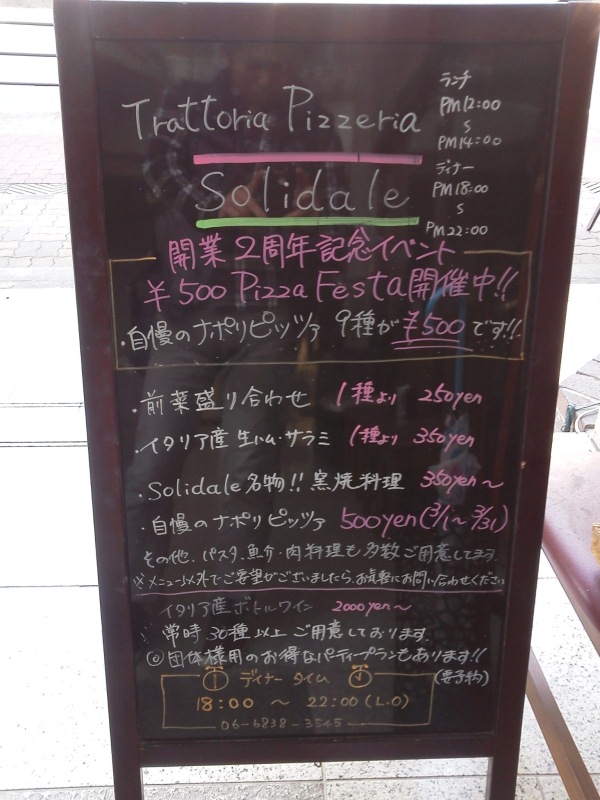 Trattoria Pizzeria
Solidale
ランチ
PM12:00
~
PM14:00
ディナー
PM18:00
~
PM22:00
開業2周年記念イベント
¥500 Pizza Festa開催中!!
・自慢のナポリピッツァ 9種が ¥500です!!
・前菜盛り合わせ 1種より 250yen
・イタリア産 生ハム・サラミ 1種より 350yen
・Solidale名物!! 窯焼料理 350yen～
・自慢のナポリピッツァ 500yen(3/1～3/31)
その他、パスタ、魚介・肉料理も多数ご用意してます。
※メニュー以外でご要望がございましたら、お気軽にお問い合わせください
イタリア産ボトルワイン 2000yen～
常時30種以上ご用意しております。
◎団体様用のお得なパーティープランもあります!!
(要予約)
ディナータイム
18:00 ～ 22:00(L.O)
06-6838-3545